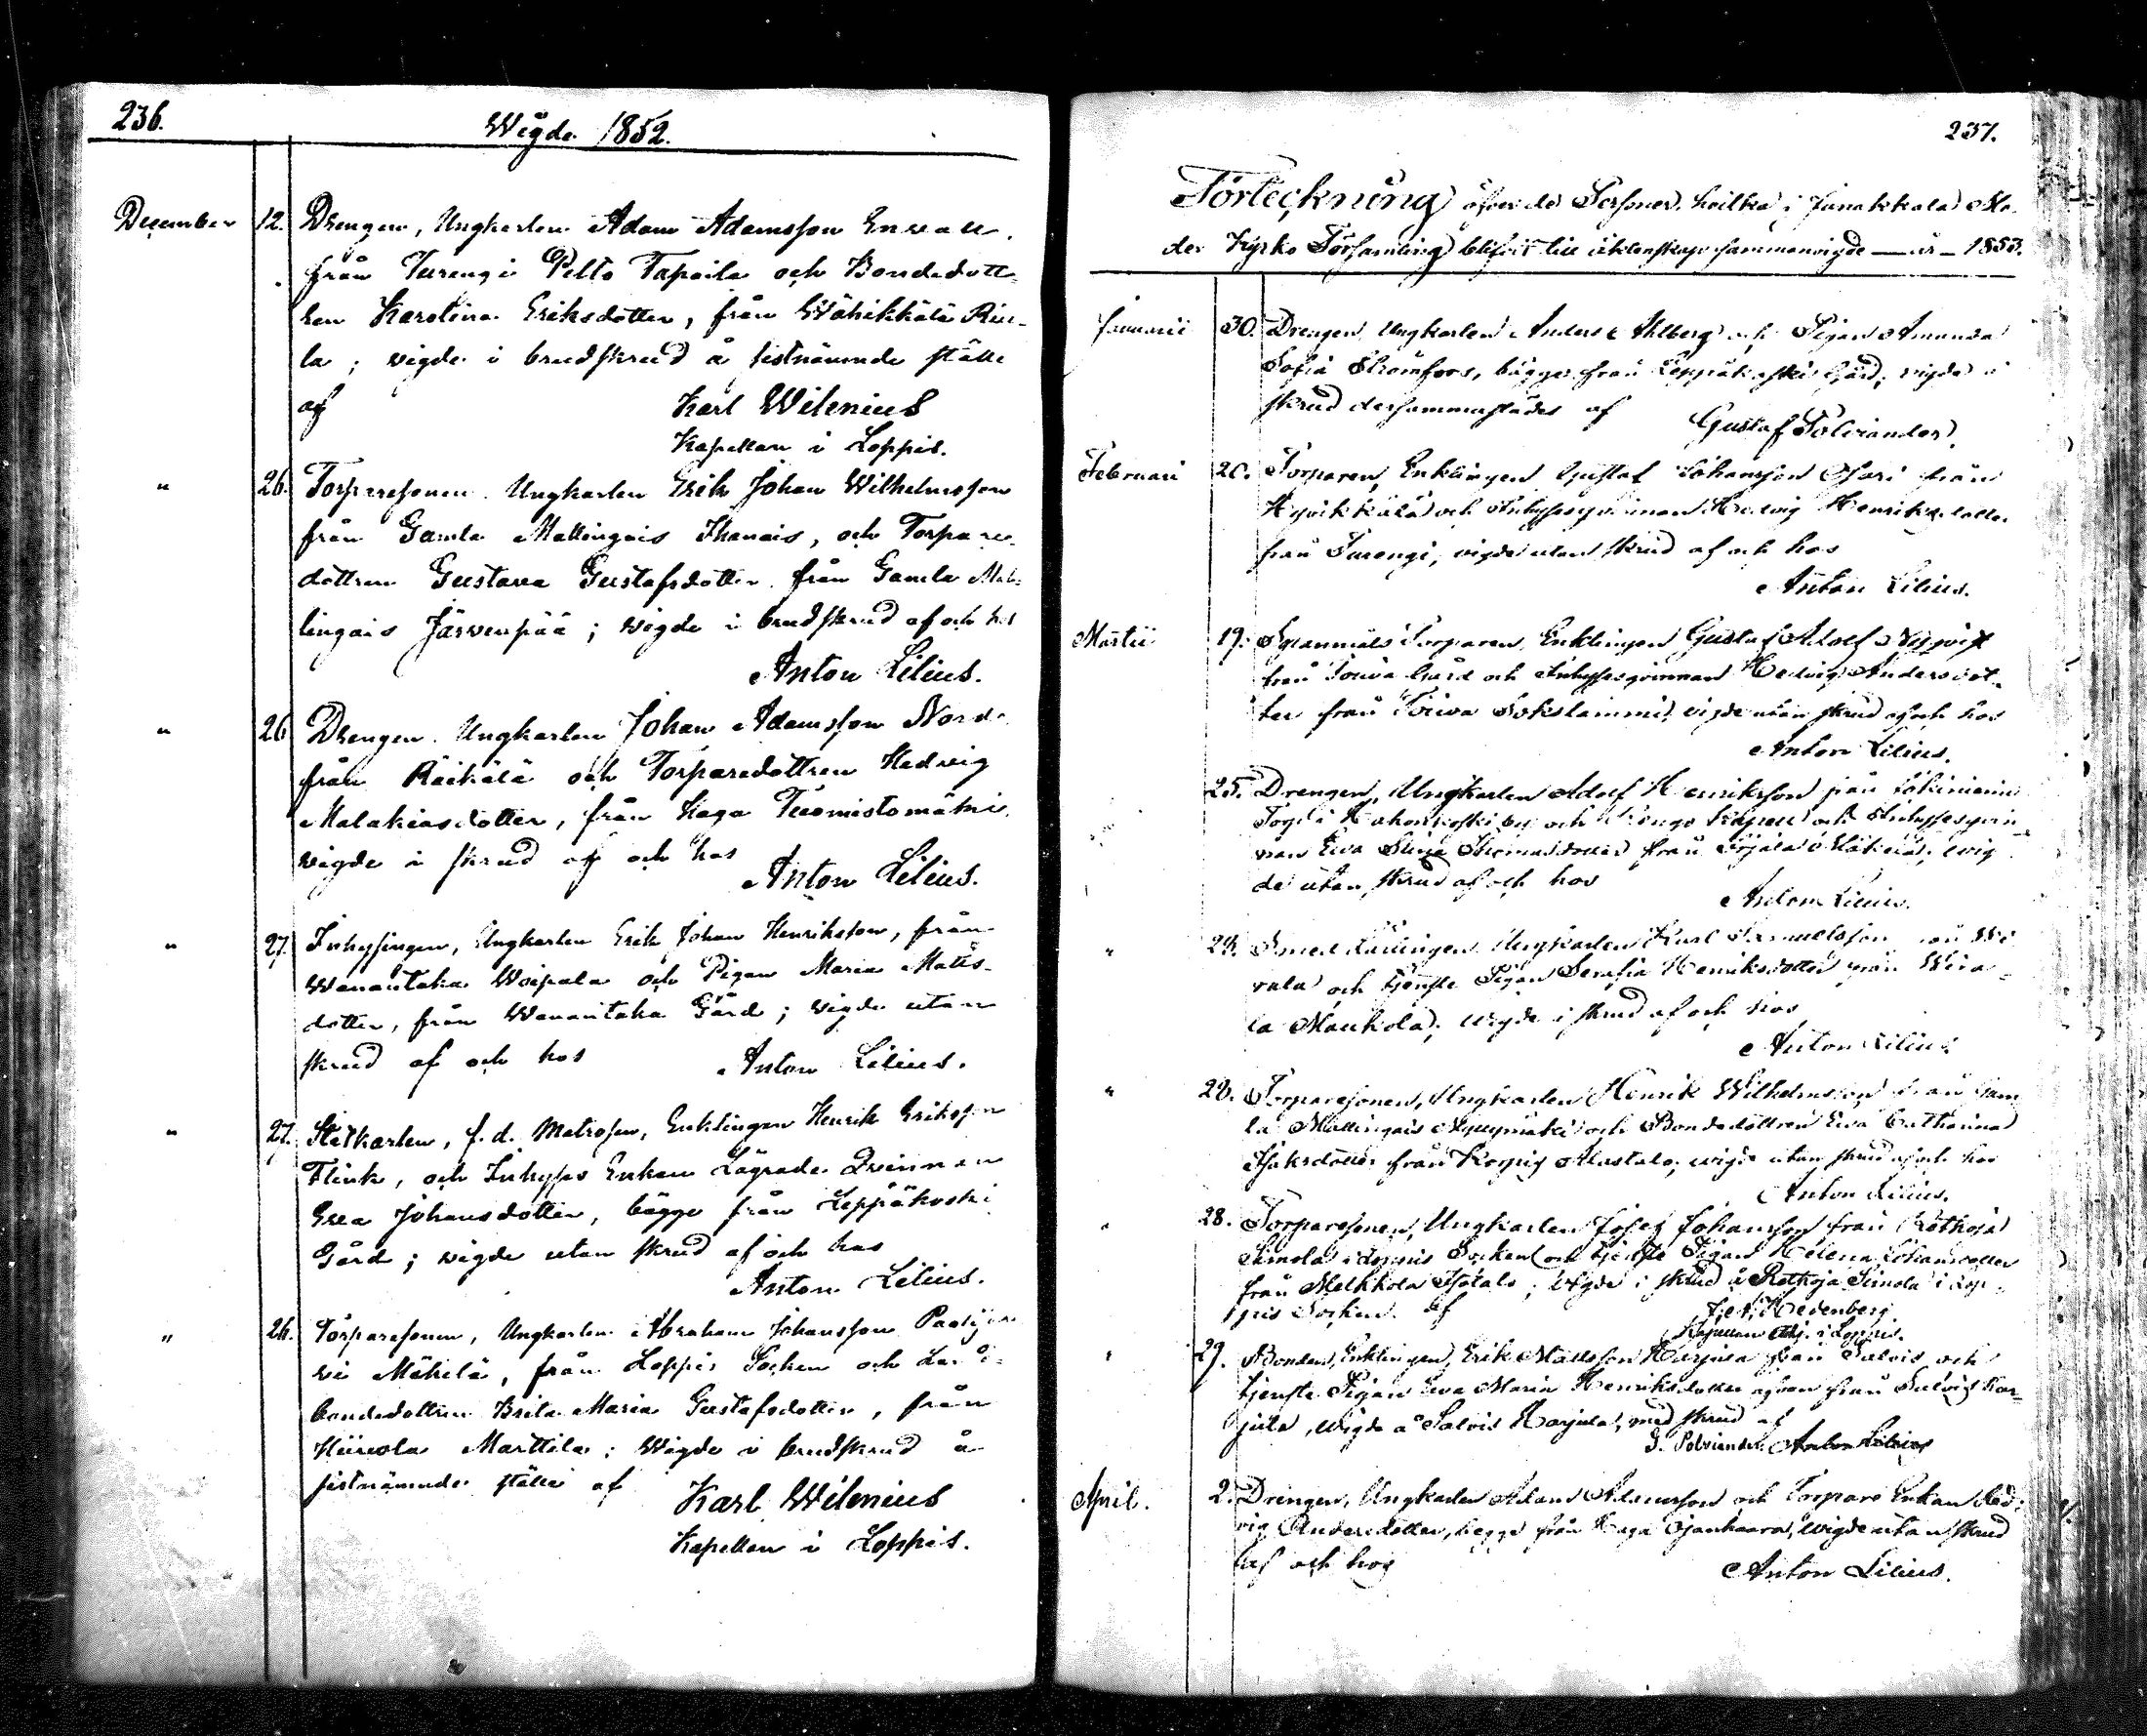 236.
Wigde 1852.
December 12. Drengen, Ungkarlen Adam Adamsson Envall
från Turengi Pelto Tapoila och Bondedott-
ren Karolina Eriksdotter, från Wähikkälä
la; vigde i brudskrud å sistnämnde ställe
af Karl Wilenius
Kapellan i Loppis.
" 26. Torparesonen Ungkarlen Erik Johan Wilhelmsson
från Gamla Mallingais Ihanais, och Torpare-
dottren Gustava Gustafsdotter från Gamla Mal-
lingais Järvenpää; vigde i brudskrud af och hos
Anton Lilius.
" 26 Drengen Ungkarlen Johan Adamsson Nord
från Räikälä och Torparedottren Hedvig
Malakiasdotter, från Haga Tuomistomäki
vigde i skrud af och hos
Anton Lilius.
" 27. Inhysingen, Ungkarlen Erik Johan Henriksson, från
Wanantaka Woipala och Pigan Maria Matts-
dotter, från Wanantaka Gård; vigde utan
skrud af och hos Anton Lilius.
" 27. Statkarlen, f. d. Matrosen, Enklingen Henrik Eriksson
Flink, och Inhyses Enkan Lägrade Qvinnan
Eva Johansdotter, bägge från Leppäkoski
Gård; vigde utan skrud af och hos
Anton Lilius.
" 26. Torparesonen, Ungkarlen Abraham Johansson
Mäkelä, från Loppis Socken och
bondedottren Brita Maria Gustafsdotter, från
Hiivola Marttila; Wigde i brudskrud å
sistnämnde ställe af Karl Wilenius
Kapellan i Loppis.
237.
Förteckning öfver de Personer, hvilka i Janakkala Mo-
der Kyrko Församling blifvit till äktenskap sammanvigde — år — 1853.
Januarii 30. Drengen, Ungkarlen Anders Ahlberg och Pigan Amanda
Sofia Strömfors, bägge från Leppäkoski Gård; vigde i
skrud dersammastädes af Gustaf Polviander.
Februari 20. Torparen, Enklingen Gustaf Johansson från
Hyvikkälä och Inhysesqvinnan Hedvig Henriksdotter
från Turengi, vigde utan skrud af och hos
Anton Lilius.
Martii 19. Torparen, Enklingen Gustaf Adolf Nyqvist
från Gård och Inhysesqvinnan Hedvig Andersdot-
ter från vigde utan skrud af och hos
Anton Lilius.
25. Drengen, Ungkarlen Adolf Henriksson från
Torp i Hakoinen och Inhysesqvin-
nan Eva Stina Thomasdotter från vig-
de utan skrud af och hos
Anton Lilius.
" Ungkarlen Karl Samuelsson
rala och tjenste Pigan Serafia Henriksdotter från Wira-
la Maukola; wigde i skrud af och hos
Anton Lilius.
" 28. Torparesonen, Ungkarlen Henrik Wilhelmsson från Gam
la Mallingais Myllymäki och Bondedottren Eva Catharina
Isaksdotter från wigde utan skrud af och hos
Anton Lilius.
" 28. Torparesonen, Ungkarlen Josef Johansson från Rotkoja
Simola i Loppis Socken och tjenste Pigan Helena Johansdotter
från Melkkola wigde i skrud å Rotkoja Simola i Lop-
pis Socken af Hedenberg
Kapellans Adj. i Loppis.
" 29. Bonden, Enklingen, Erik Mattsson Harjula från Salois och
tjenste Pigan Eva Maria Henriksdotter äfven från Salois Har-
jula, wigde å Salois Harjula, med skrud af
G. Polviander. Anton Lilius
April. 2. Drengen, Ungkarlen Adam Adamsson och Torpare Enkan Hed-
vig Andersdotter, begge från Haga wigde utan skrud
af och hos Anton Lilius.